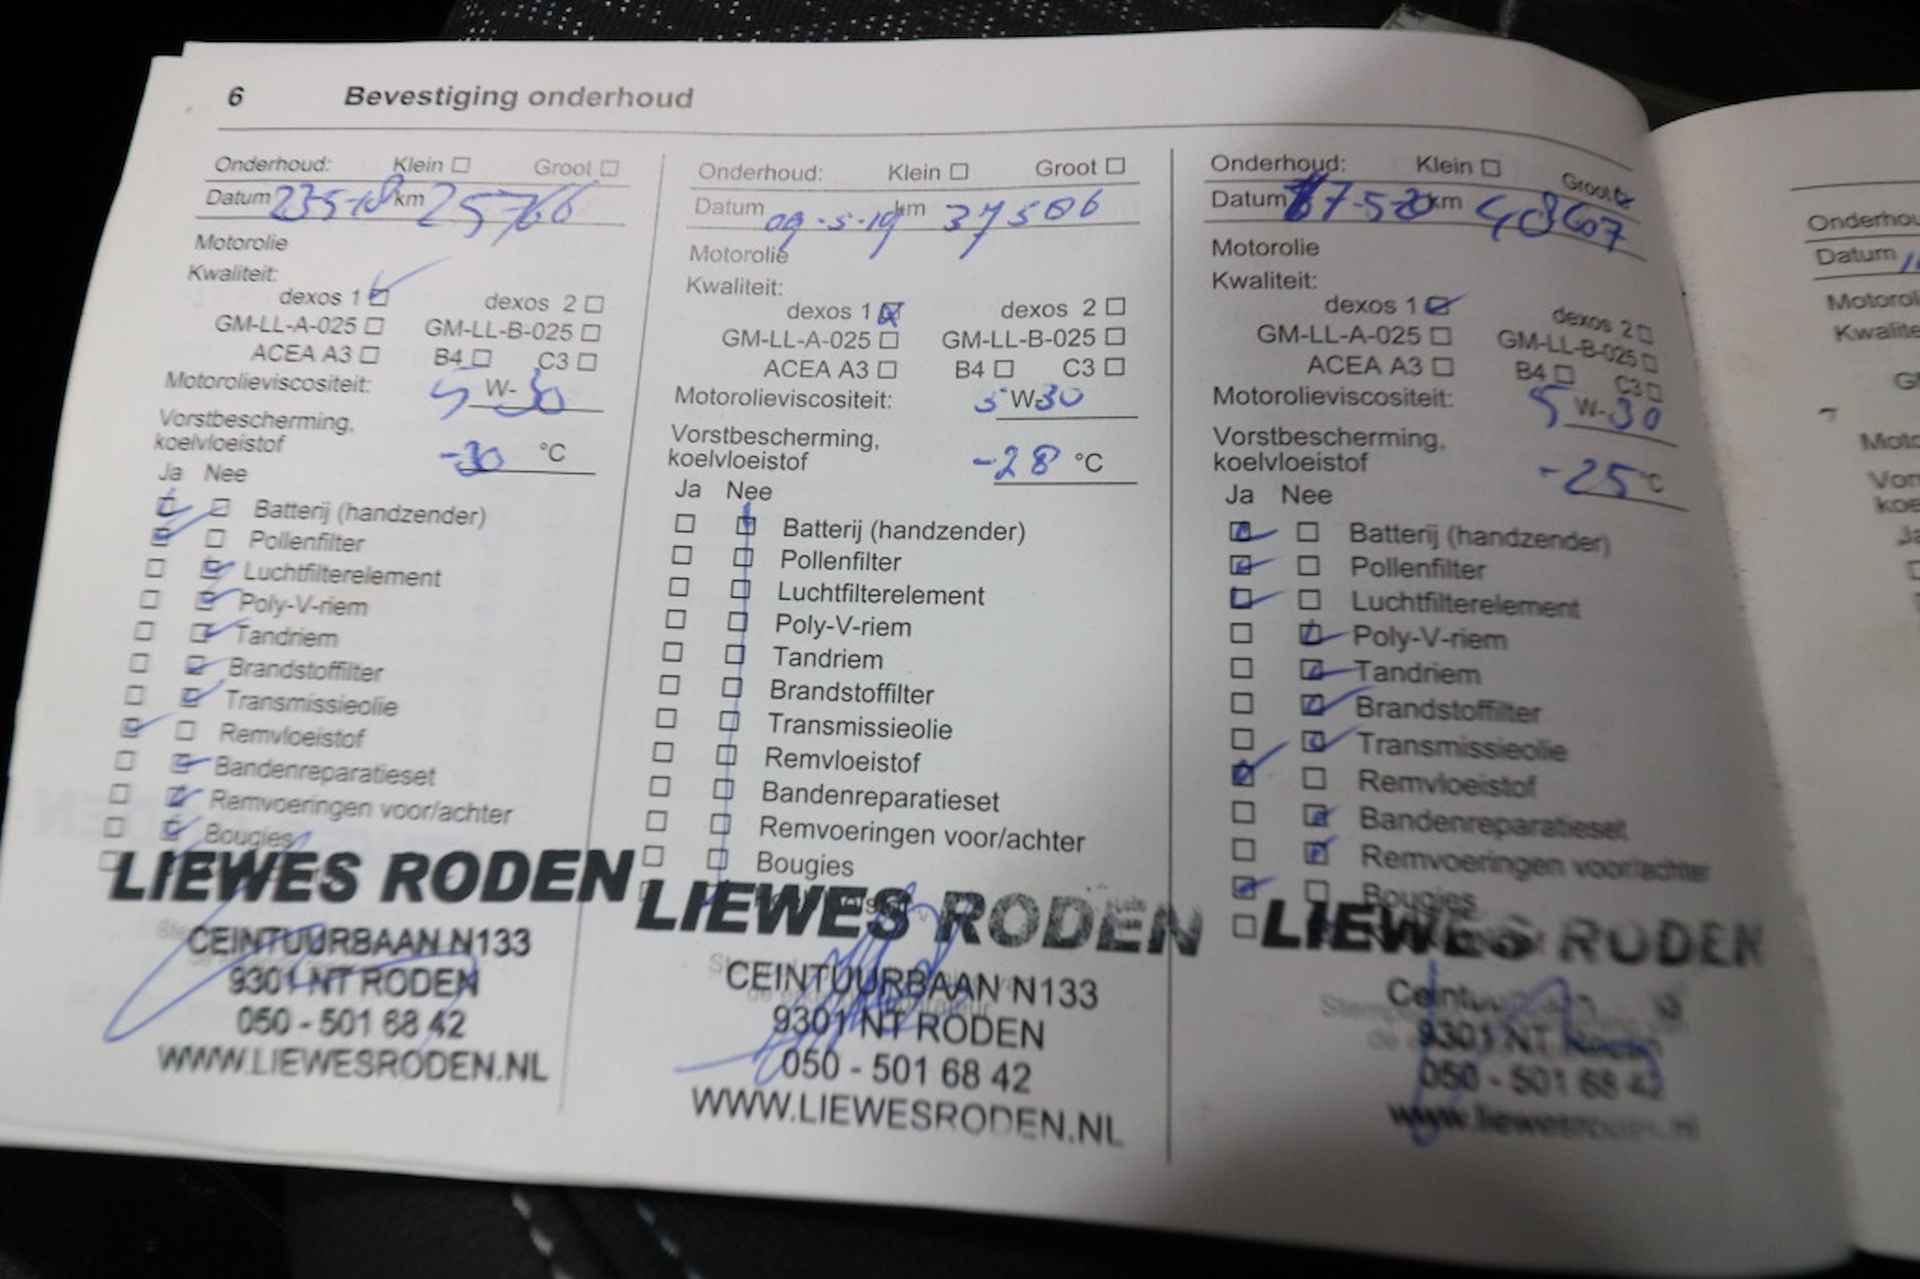 6 Bevestiging onderhoud
Onderhoud: Klein Groot
Datum 23-5-18 km 25766
Motorolie
Kwaliteit:
dexos 1 dexos 2
GM-LL-A-025 GM-LL-B-025
ACEA A3 B4 C3
Motorolieviscositeit: 5 W-30
Vorstbescherming,
koelvloeistof -30 °C
Ja Nee
Batterij (handzender)
Pollenfilter
Luchtfilterelement
Poly-V-riem
Tandriem
Brandstoffilter
Transmissieolie
Remvloeistof
Bandenreparatieset
Remvoeringen voor/achter
Bougies
LIEWES RODEN
CEINTUURBAAN N133
9301 NT RODEN
050 - 501 68 42
WWW.LIEWESRODEN.NL
Onderhoud: Klein Groot
Datum 09-5-19 km 37506
Motorolie
Kwaliteit:
dexos 1 dexos 2
GM-LL-A-025 GM-LL-B-025
ACEA A3 B4 C3
Motorolieviscositeit: 5 W-30
Vorstbescherming,
koelvloeistof -28 °C
Ja Nee
Batterij (handzender)
Pollenfilter
Luchtfilterelement
Poly-V-riem
Tandriem
Brandstoffilter
Transmissieolie
Remvloeistof
Bandenreparatieset
Remvoeringen voor/achter
Bougies
LIEWES RODEN
CEINTUURBAAN N133
9301 NT RODEN
050 - 501 68 42
WWW.LIEWESRODEN.NL
Onderhoud: Klein Groot
Datum 17-5-20 km 48607
Motorolie
Kwaliteit:
dexos 1 dexos 2
GM-LL-A-025 GM-LL-B-025
ACEA A3 B4 C3
Motorolieviscositeit: 5 W-30
Vorstbescherming,
koelvloeistof -25 °C
Ja Nee
Batterij (handzender)
Pollenfilter
Luchtfilterelement
Poly-V-riem
Tandriem
Brandstoffilter
Transmissieolie
Remvloeistof
Bandenreparatieset
Remvoeringen voor/achter
Bougies
LIEWES RODEN
9301 NT Roden
050 - 501 68 42
www.liewesroden.nl
Datum